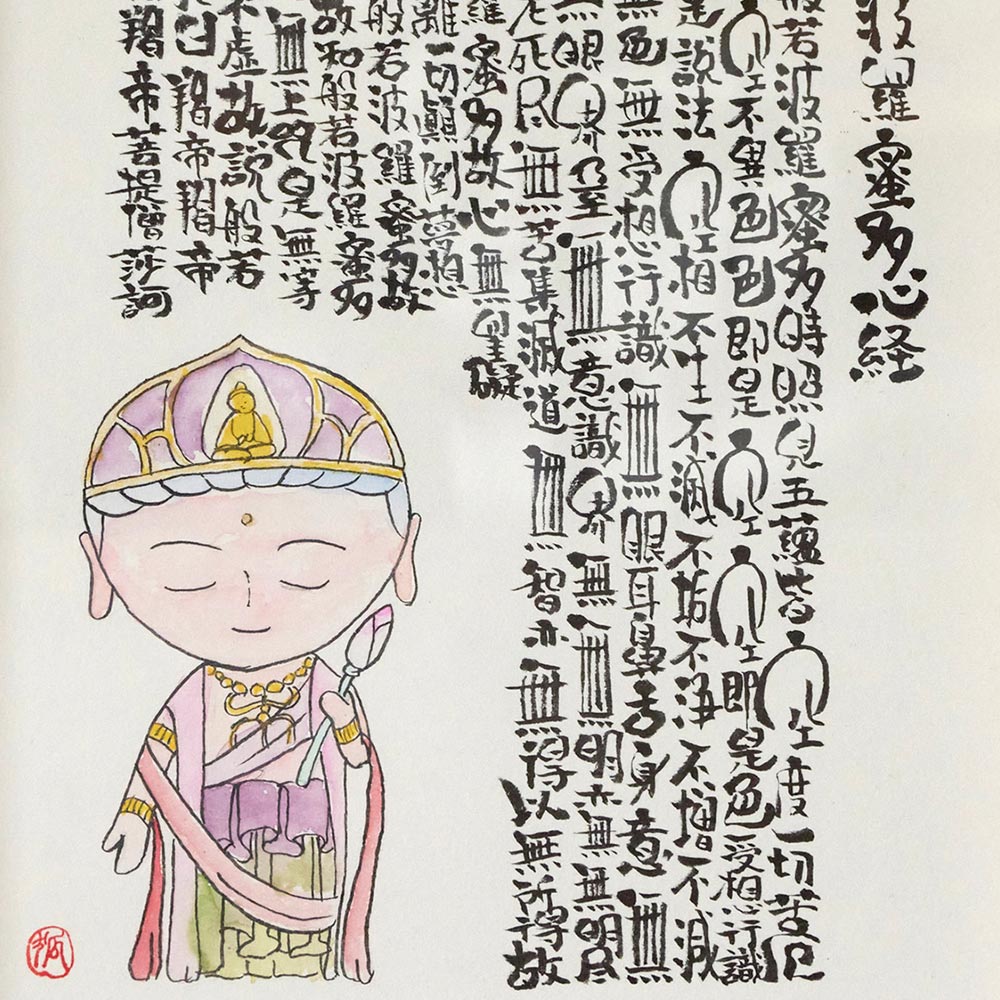 波羅蜜多心経
般若波羅蜜多時照見五蘊皆空度一切苦厄
空不異色色即是空空即是色受想行識
是説法空相不生不滅不垢不浄不増不減
無色無受想行識無眼耳鼻舌身意無
無眼界乃至無意識界無無明亦無無明尽
老死尽無苦集滅道無智亦無得以無所得故
羅蜜多故心無罣礙
離一切顛倒夢想
般若波羅蜜多故
故知般若波羅蜜多
無上呪是無等
不虚故説般若
曰羯帝羯帝
羯帝菩提僧莎訶